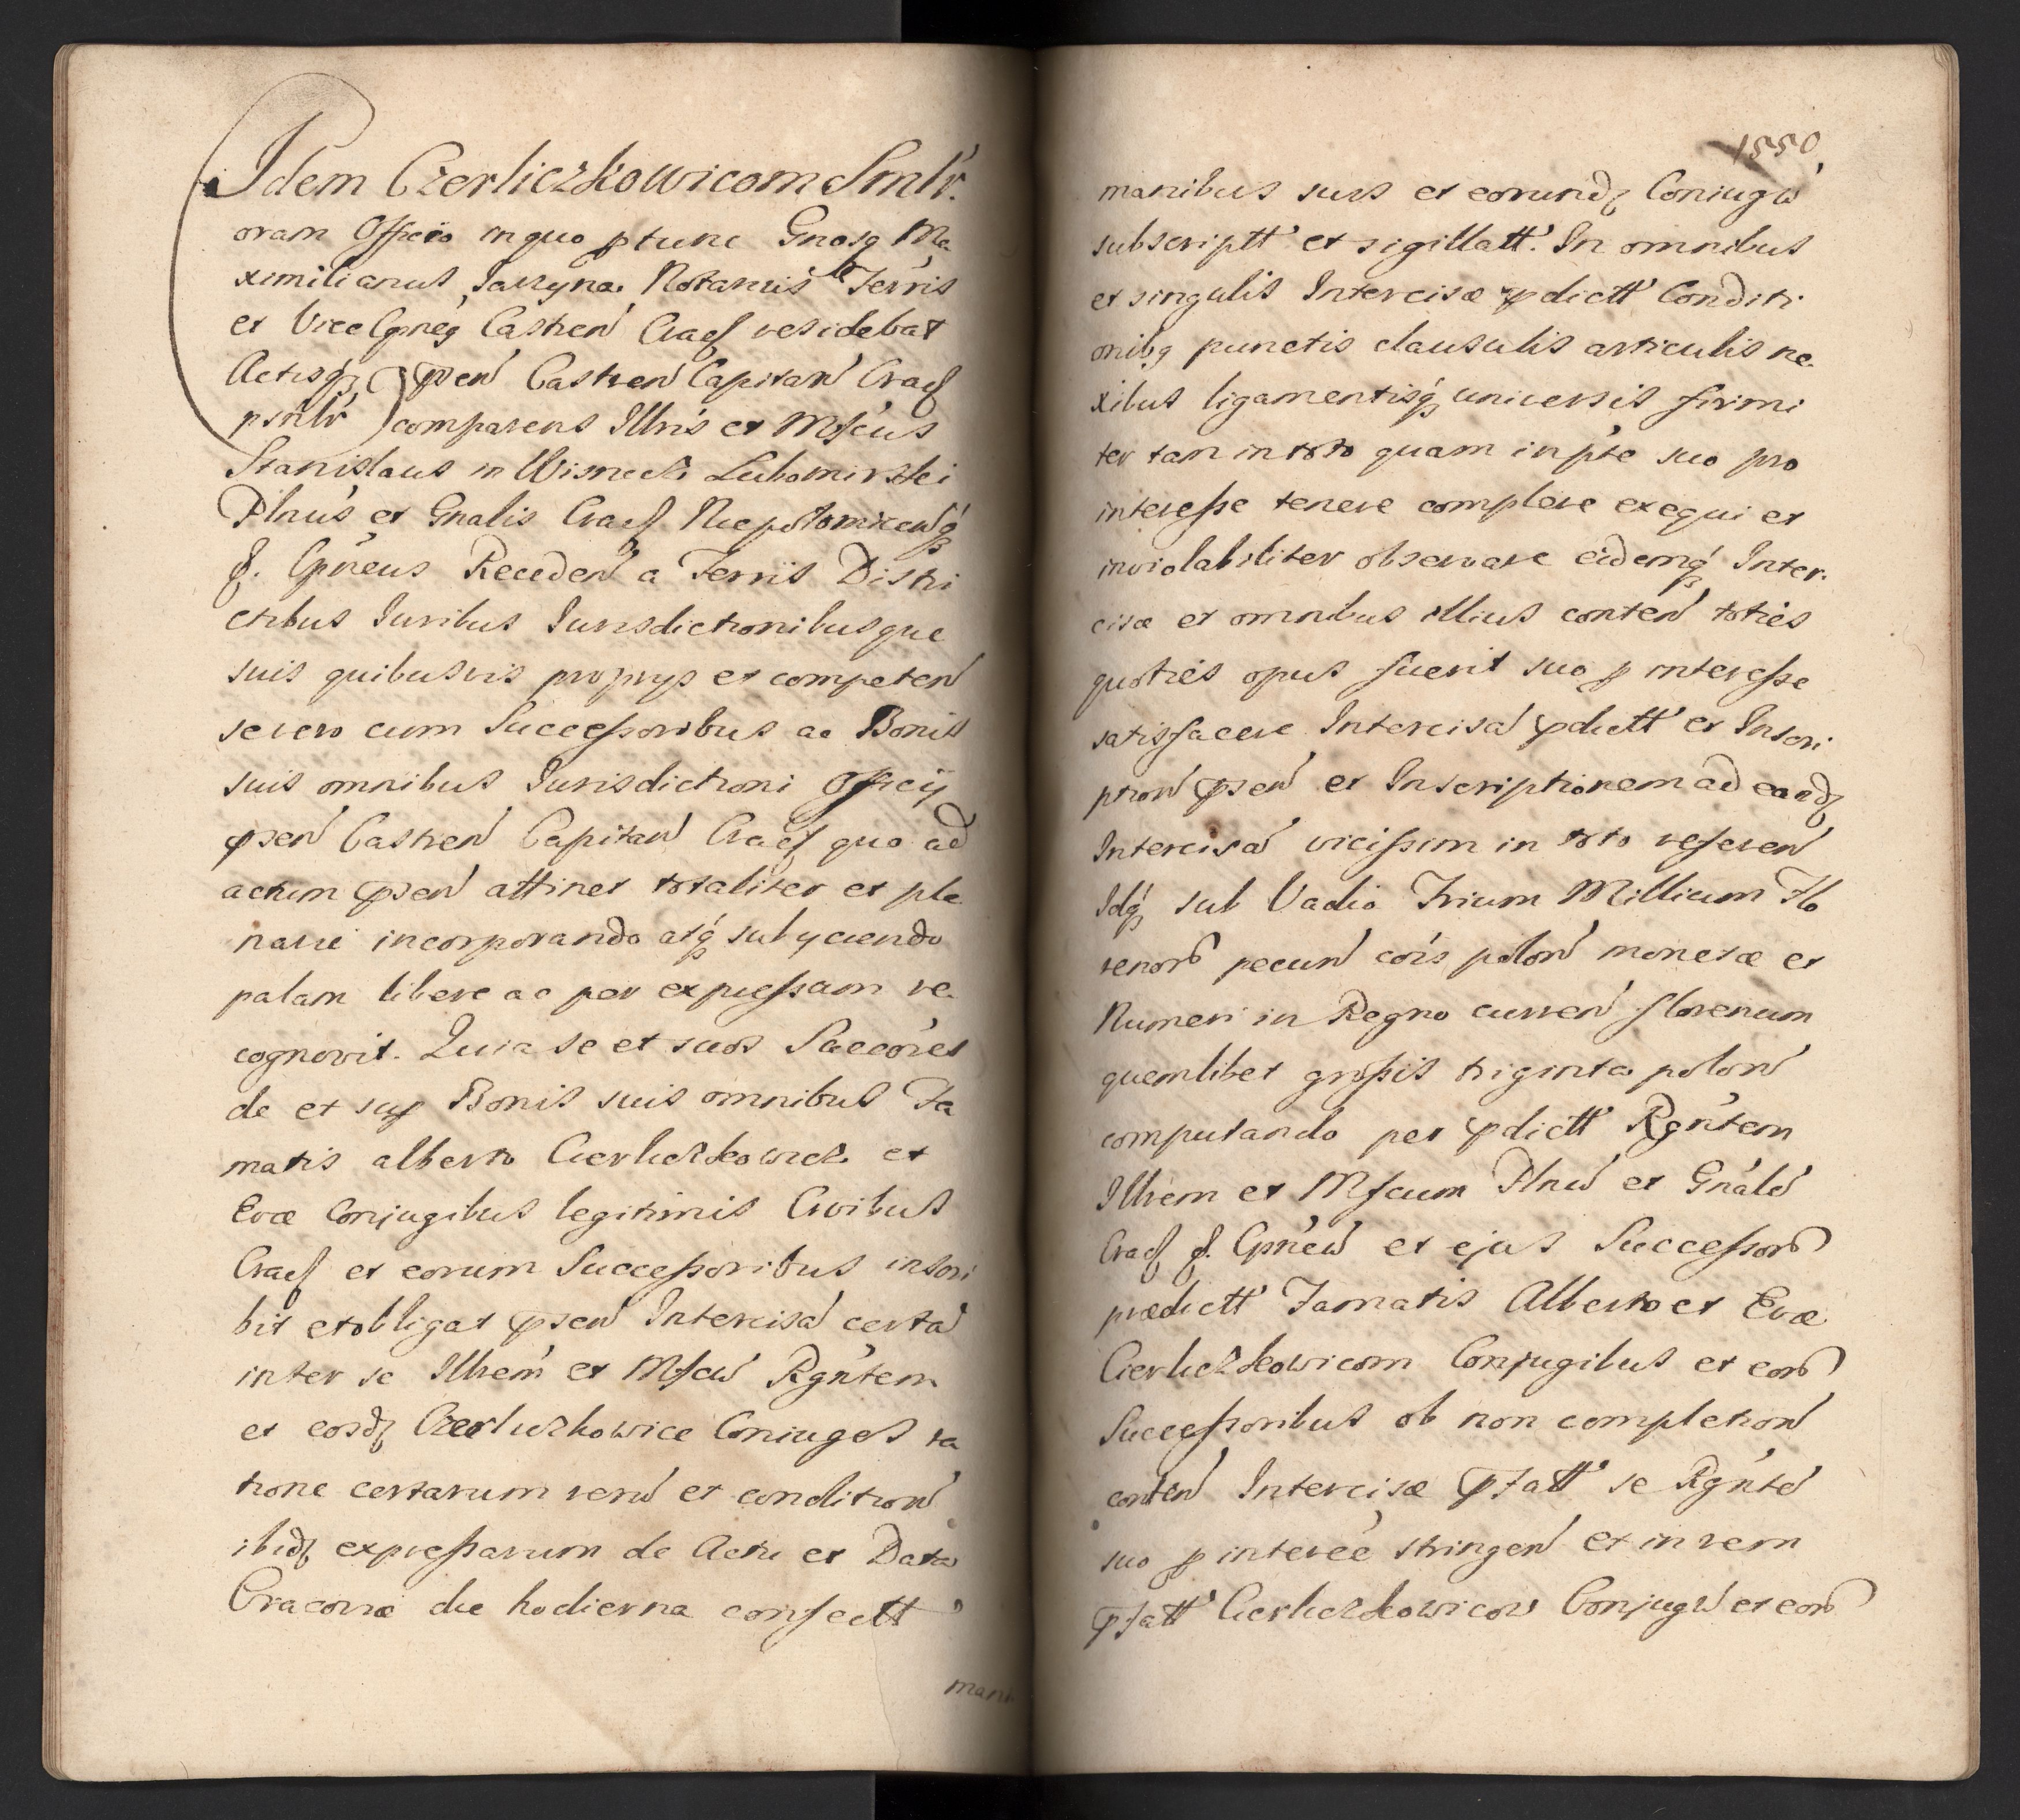 Idem Czerliczkowicom Smlr.
oram Officio in quo ptunc Gnosq Ma
ximilianus Jarzyna Notarius Terris
et Vice Cpneq Castren Cracf residebat
Actisq psen Castren Capitan Cracf
psnlr comparens Illris et Mfcus
Stanislaus in Wisnicz Lubomirski
Plnus et Gnalis Cracf Niepolomicensq
&. Cpneus Receden a Terris Distri
ctibus Iuribus Iurisdictionibusque
suis quibusvis proprys et competen
se vero cum Successoribus ac Bonis
suis omnibus Iurisdictioni Officÿ
psen Castren Capitan Cracf quo ad
actum psen attinet totaliter et ple
narie incorporando atq subyciendo
palam libere ac per expressum re.
cognovit. Quia se et suos Saccores
de et sup Bonis suis omnibus Fa
matis alberto Cierliczkowicz et
Evæ Conjugibus legitimis Civibus
Cracf et eorum Successoribus inscri
bit et obligat psen Intercisa certa
inter se Illrem et Mfcu Rgntem
et eosdz Czerliczkowice Coniuges ra
tione certarum reru et condition
ibidz expressarum de Actu et Data
Cracoviæ die hodierna confectt
mani
1550
manibus suis et eorundz Coniugu
subscriptt et sigillatt. In omnibus
et singulis Intercisæ pdictt Conditi
onibq punctis clausulis articulis ne
xibus ligamentisq universis firmi
ter tam in toto quam in pte suo pro
interesse tenere complere exequi et
inviolabiliter observare eidemq Inter.
cisæ et omnibus illius conten toties
quoties opus fuerit suo p interesse
satisfacere Intercisa pdictt et Inscri
ption psen et Inscriptionem ad eandz
Intercisa vicissim in toto referen
Idq sub Vadio Trium Millium Flo
renor pecun cois polon monetæ et
Numeri in Regno curren florenum
quemlibet grossis triginta polon
computando per pdictt Rgntem
Illrem et Mfcum Plnu et Gnale
Cracf &. Cpneu et ejus Successor
prædictt Famatis Alberto et Evæ
Cierliczkowicom Conjugibus et eor
Successoribus ob non completion
conten Intercisæ pfatt se Rgnte
suo p interee stringen et in rem
pfatt Cierliczkowicow Conjugu et eor